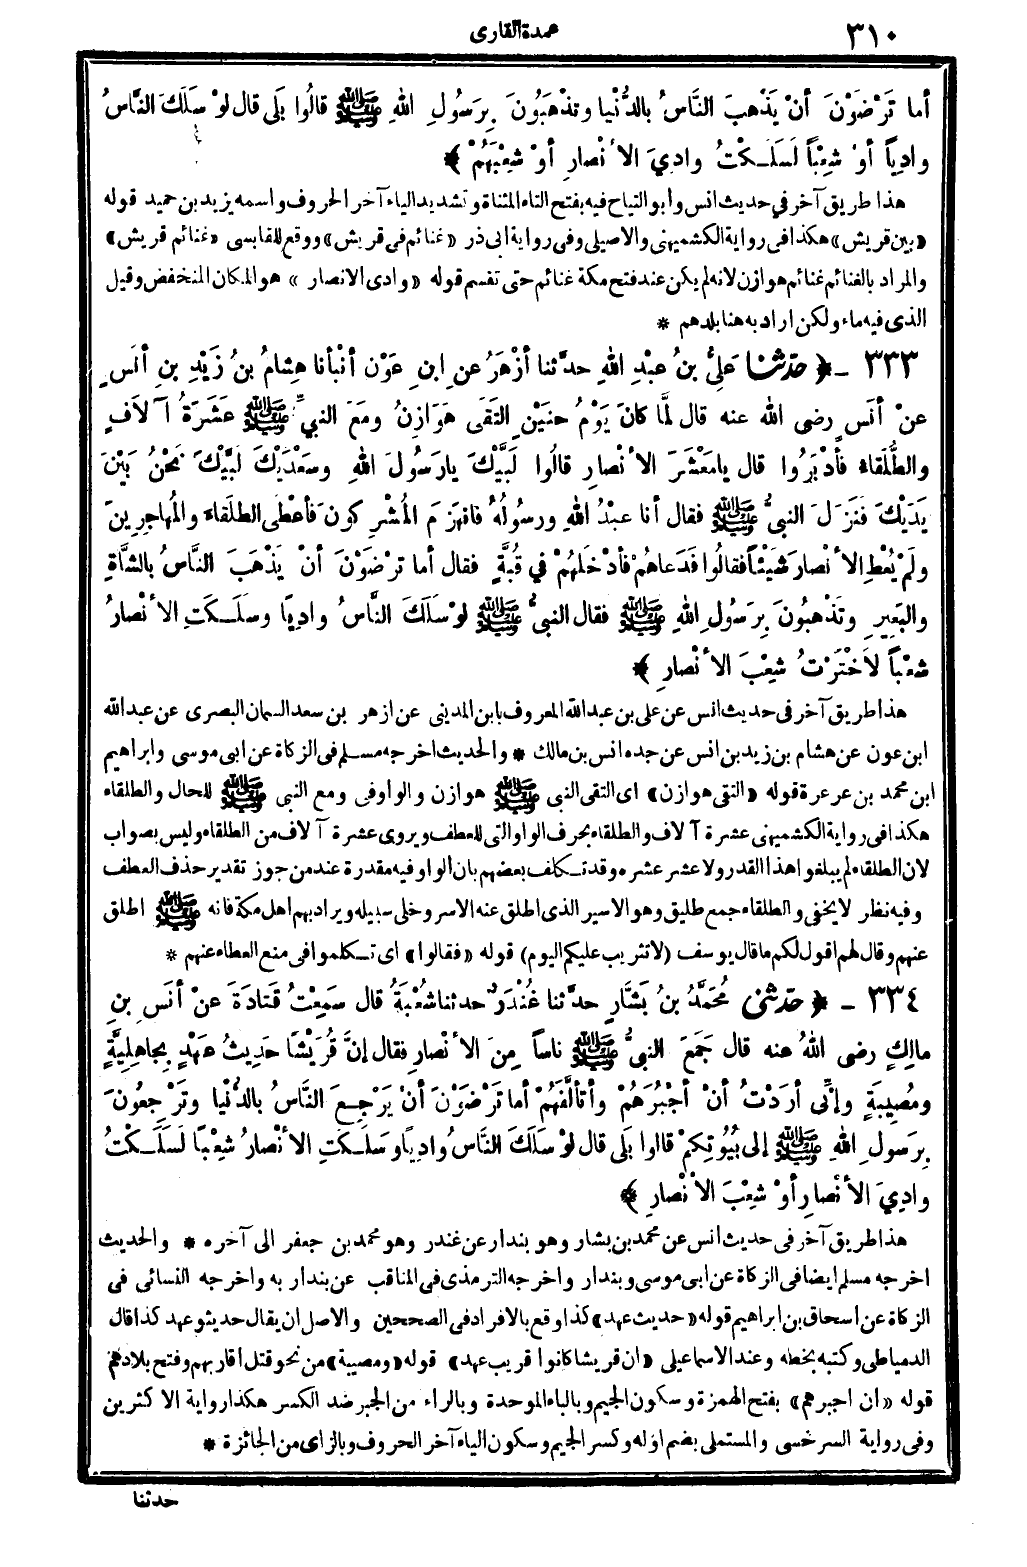 ٣١٠
عمدة القارى
أما تَرْضَوْنَ أنْ يَذْهبَ النَّاسُ بالدُّنْيا وتذْهَبُونَ بِرَسُولِ اللهِ ﷺ قالُوا بَلَى قال لوْ سَلَكَ النَّاسُ
وادِياً أوْ شِعْباً لَسَلَكْتُ وادِيَ الأنْصارِ أوْ شِعْبَهُمْ ﴾
هذا طريق آخر في حديث انس وأبو التياح فيه بفتح التاء المثناة وتشديد الياء آخر الحروف واسمه يزيد بن حميد قوله
«بين قريش» هكذا فى رواية الكشميهنى والاصيلى وفى رواية ابى ذر «غنائم فى قريش» ووقع للقابسى «غنائم قريش»
والمراد بالغنائم غنائم هوازن لانه لم يكن عند فتح مكة غنائم حتى تقسم قوله «وادى الانصار» هو المكان المنخفض وقيل
الذى فيه ماء ولكن اراد به هنا بلدهم *
٣٣٣ - ﴿ حدّثنا عَلِىُّ بنُ عبْدِ اللهِ حدّثنا أزْهَرُ عنِ ابنِ عوْنٍ أنْبأنا هِشامُ بنُ زَيْدِ بنِ أنَسٍ
عنْ أنَسٍ رضى الله عنه قال لمَّا كانَ يَوْمُ حنَيْنٍ التَقَى هَوَازِنُ ومَعَ النبيِّ ﷺ عَشَرَةُ آلاَفٍ
والطُّلَقاءُ فأدْبَرُوا قال يا مَعْشَرَ الأنْصارِ قالُوا لَبَّيْكَ يا رَسُولَ اللهِ وسَعْدَيْكَ لَبَّيْكَ نَحْنُ بَيْنَ
يَدَيْكَ فنَزَلَ النبىُّ ﷺ فقال أنا عبْدُ اللهِ ورسُولُهُ فانْهَزَمَ المُشْرِكونَ فأعْطَى الطلَقاءَ والمُهاجِرِينَ
ولَمْ يُعْطِ الأنْصارَ شَيْئاً فقالُوا فَدَعاهُمْ فأدْخَلَهُمْ في قُبَّةٍ فقال أما ترْضَوْنَ أنْ يَذْهَبَ النَّاسُ بالشَّاةِ
والبَعِيرِ وتَذْهبُونَ بِرَسُولِ اللهِ ﷺ فقال النبىُّ ﷺ لوْ سَلَكَ النَّاسُ وادِيًا وسَلَكَتِ الأنْصارُ
شعْباً لاَخْتَرْتُ شِعْبَ الأنْصارِ ﴾
هذا طريق آخر فى حديث انس عن على بن عبد الله المعروف بابن المدينى عن ازهر بن سعد السمان البصرى عن عبد الله
ابن عون عن هشام بن زيد بن انس عن جده انس بن مالك * والحديث اخرجه مسلم فى الزكاة عن ابى موسى وابراهيم
ابن محمد بن عرعرة قوله «التقى هوازن» اى التقى النبى ﷺ هوازن والواو فى ومع النبى ﷺ للحال والطلقاء
هكذا فى رواية الكشميهنى عشرة آلاف والطلقاء بحرف الواو التى للعطف ويروى عشرة آلاف من الطلقاء وليس بصواب
لان الطلقاء لم يبلغوا هذا القدر ولا عشر عشره وقد تكلف بعضهم بان الواو فيه مقدرة عند من جوز تقدير حذف العطف
وفيه نظر لا يخفى والطلقاء جمع طليق وهو الاسير الذى اطلق عنه الاسر وخلى سبيله ويراد بهم اهل مكة فانه ﷺ اطلق
عنهم وقال لهم اقول لكم ما قال يوسف (لا تثريب عليكم اليوم) قوله «فقالوا» اى تكلموا فى منع العطاء عنهم *
٣٣٤ - ﴿ حدّثنى مُحَمَّدُ بنُ بَشَّارٍ حدّثنا غُنْدَرٌ حدثنا شُعْبَةُ قال سَمِعْتُ قَتادَةَ عنْ أنَسِ بنِ
مالِكٍ رضى اللهُ عنه قال جَمَعَ النبىُّ ﷺ ناساً مِنَ الأنْصارِ فقال إنَّ قُرَيْشًا حَدِيثُ عهْدٍ بِجاهِلِيَّةٍ
ومُصِيبَةٍ وإنِّى أرَدْتُ أنْ أجْبُرَهُمْ وأتألَّفَهُمْ أما ترْضَوْنَ أنْ يَرْجِعَ النَّاسُ بالدُّنْيا وتَرْجِعُونَ
بِرَسولِ اللهِ ﷺ إلى بُيُوتِكمْ قالوا بَلَى قال لوْ سَلَكَ النَّاسُ وادِيًا وسَلَكَتِ الأنْصارُ شِعْبًا لَسَلَكْتُ
وادِيَ الأنْصارِ أوْ شِعْبَ الأنْصارِ ﴾
هذا طريق آخر فى حديث انس عن محمد بن بشار وهو بندار عن غندر وهو محمد بن جعفر الى آخره * والحديث
اخرجه مسلم ايضا فى الزكاة عن ابى موسى وبندار واخرجه الترمذى فى المناقب عن بندار به واخرجه النسائى فى
الزكاة عن اسحاق بن ابراهيم قوله «حديث عهد» كذا وقع بالافراد فى الصحيحين والاصل ان يقال حديثو عهد كذا قال
الدمياطى وكتبه بخطه وعند الاسماعيلى «ان قريشا كانوا قريب عهد» قوله «ومصيبة» من نحو قتل اقاربهم وفتح بلادهم
قوله «ان اجبرهم» بفتح الهمزة وسكون الجيم وبالباء الموحدة وبالراء من الجبر ضد الكسر هكذا رواية الاكثرين
وفى رواية السرخسى والمستملى بضم اوله وكسر الجيم وسكون الياء آخر الحروف وبالزاى من الجائزة *
حدثنا